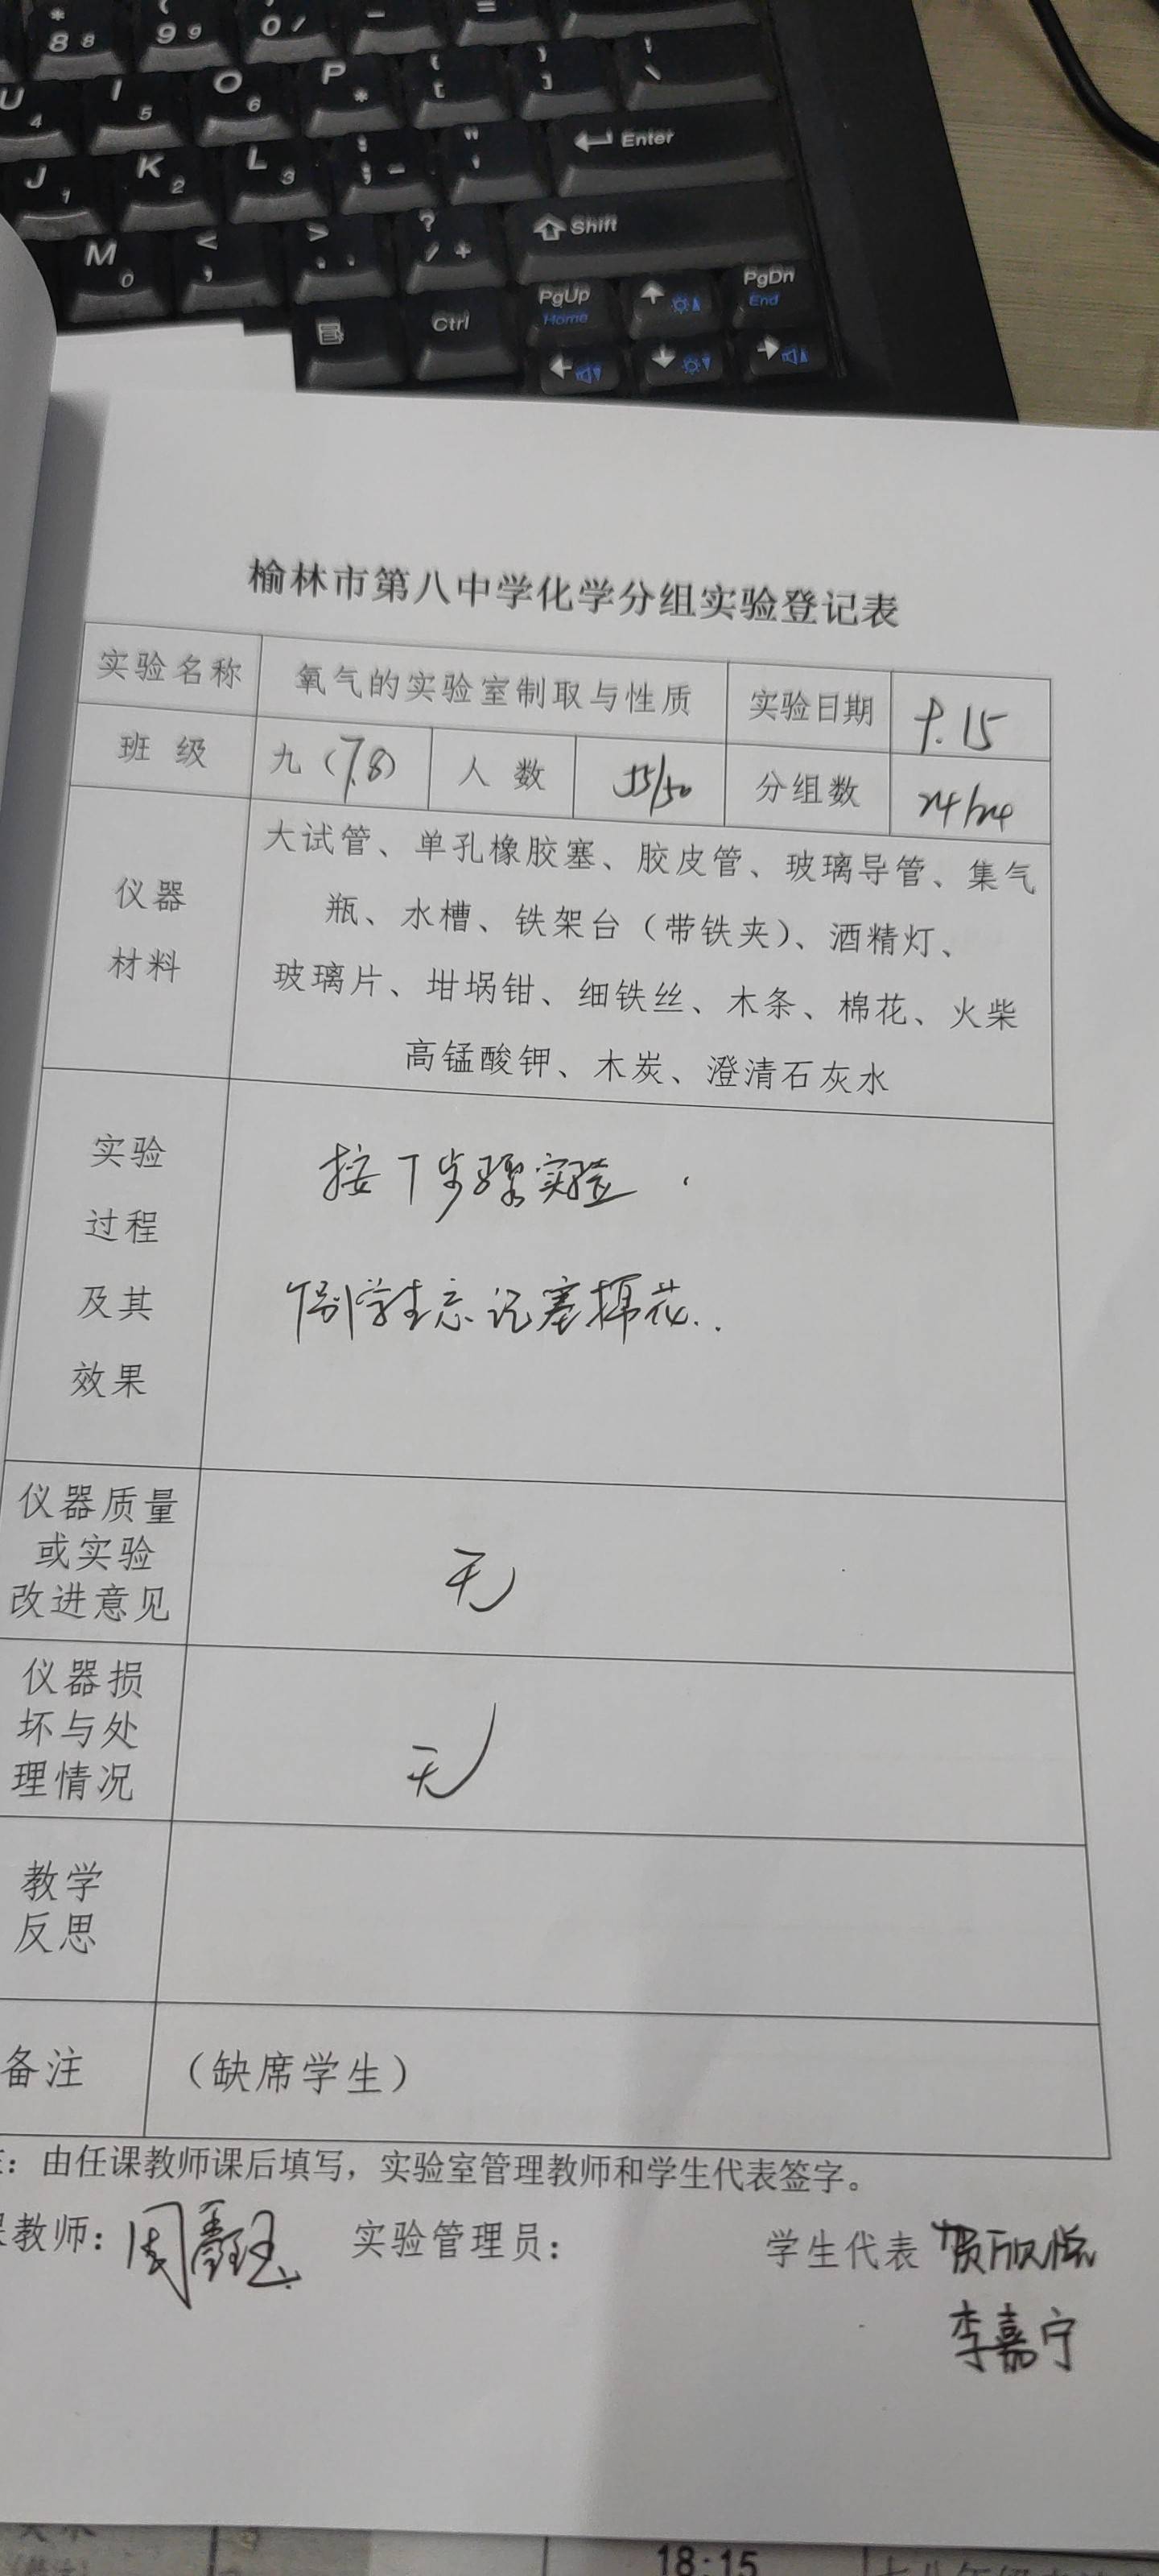 * 8 8
( 9 9
) 0 /
-
=
U 4
I 5
O 6
P *
{ [
} ]
| \
J 1
K 2
L 3
: ; -
" '
Enter
M 0
< ,
> . .
? / +
Shift
Ctrl
PgUp Home
PgDn End
榆林市第八中学化学分组实验登记表
实验名称 氧气的实验室制取与性质 实验日期 9.15
班 级 九（7.8） 人 数 55/50 分组数 24/24
仪器
材料
大试管、单孔橡胶塞、胶皮管、玻璃导管、集气
瓶、水槽、铁架台（带铁夹）、酒精灯、
玻璃片、坩埚钳、细铁丝、木条、棉花、火柴
高锰酸钾、木炭、澄清石灰水
实验
过程
及其
效果
按下步骤实验．
个别学生忘记塞棉花．.
仪器质量
或实验
改进意见
无
仪器损
坏与处
理情况
无
教学
反思
备注 （缺席学生）
：由任课教师课后填写，实验室管理教师和学生代表签字。
教师：周 实验管理员： 学生代表 贺欣悦
李嘉宁
18:15